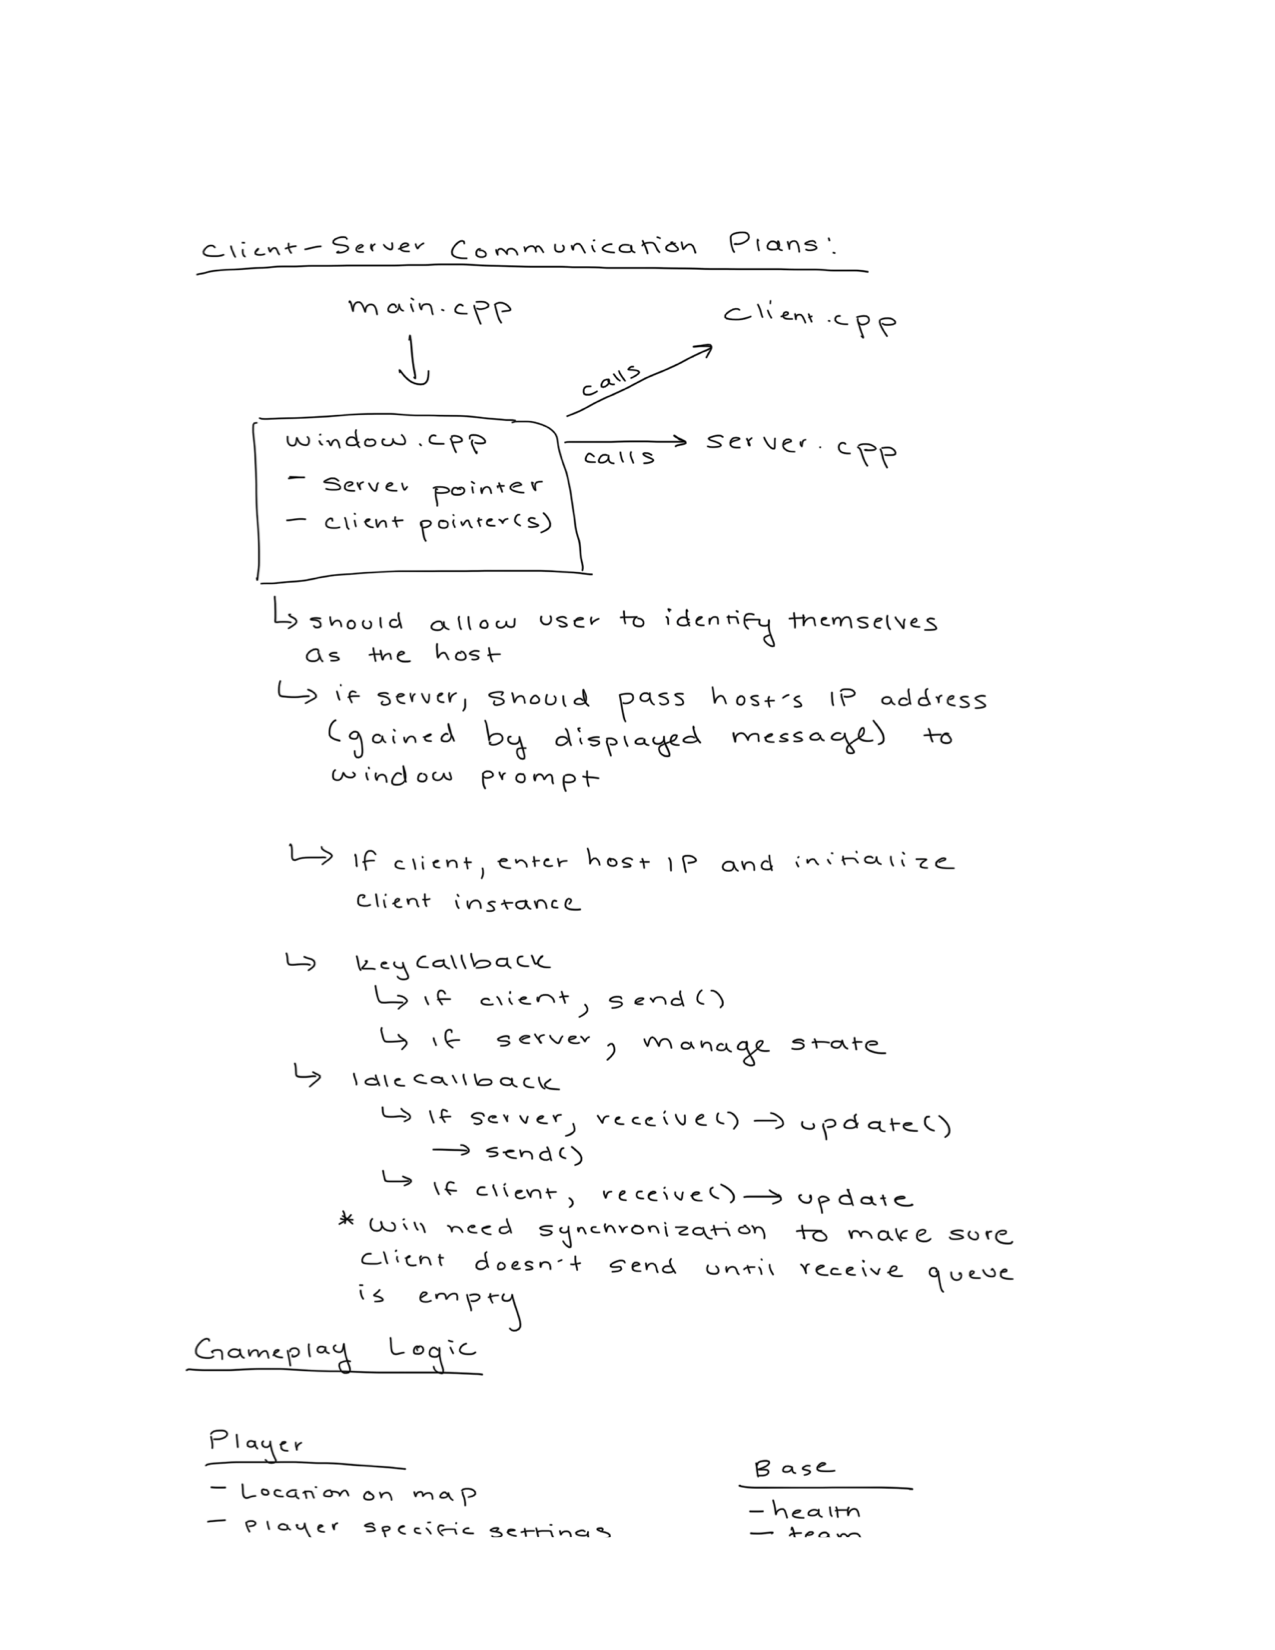 Client-Server Communication Plans:
main.cpp
client.cpp
calls
window.cpp
- server pointer
- client pointer(s)
calls
server.cpp
↳ should allow user to identify themselves
as the host
↳ if server, should pass host's IP address
(gained by displayed message) to
window prompt
↳ If client, enter host IP and initialize
client instance
↳ keyCallback
↳ if client, send()
↳ if server, manage state
↳ IdleCallback
↳ If server, receive() → update()
→ send()
↳ If client, receive() → update
* Will need synchronization to make sure
client doesn't send until receive queue
is empty
Gameplay Logic
Player
- Location on map
- player specific settings
Base
- health
- team